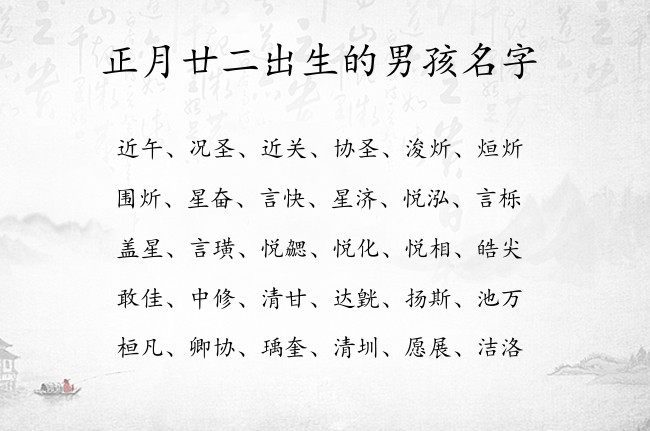 正月廿二出生的男孩名字
近午、况圣、近关、协圣、浚炘、烜炘
围炘、星奋、言快、星济、悦泓、言栎
盖星、言璜、悦勰、悦化、悦相、皓尖
敢佳、中修、清甘、达毓、扬斯、池万
桓凡、卿协、瑀奎、清圳、愿展、洁洛